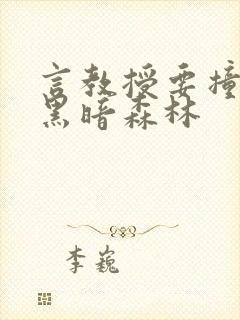 言教授要撞
黑暗森林
李巍